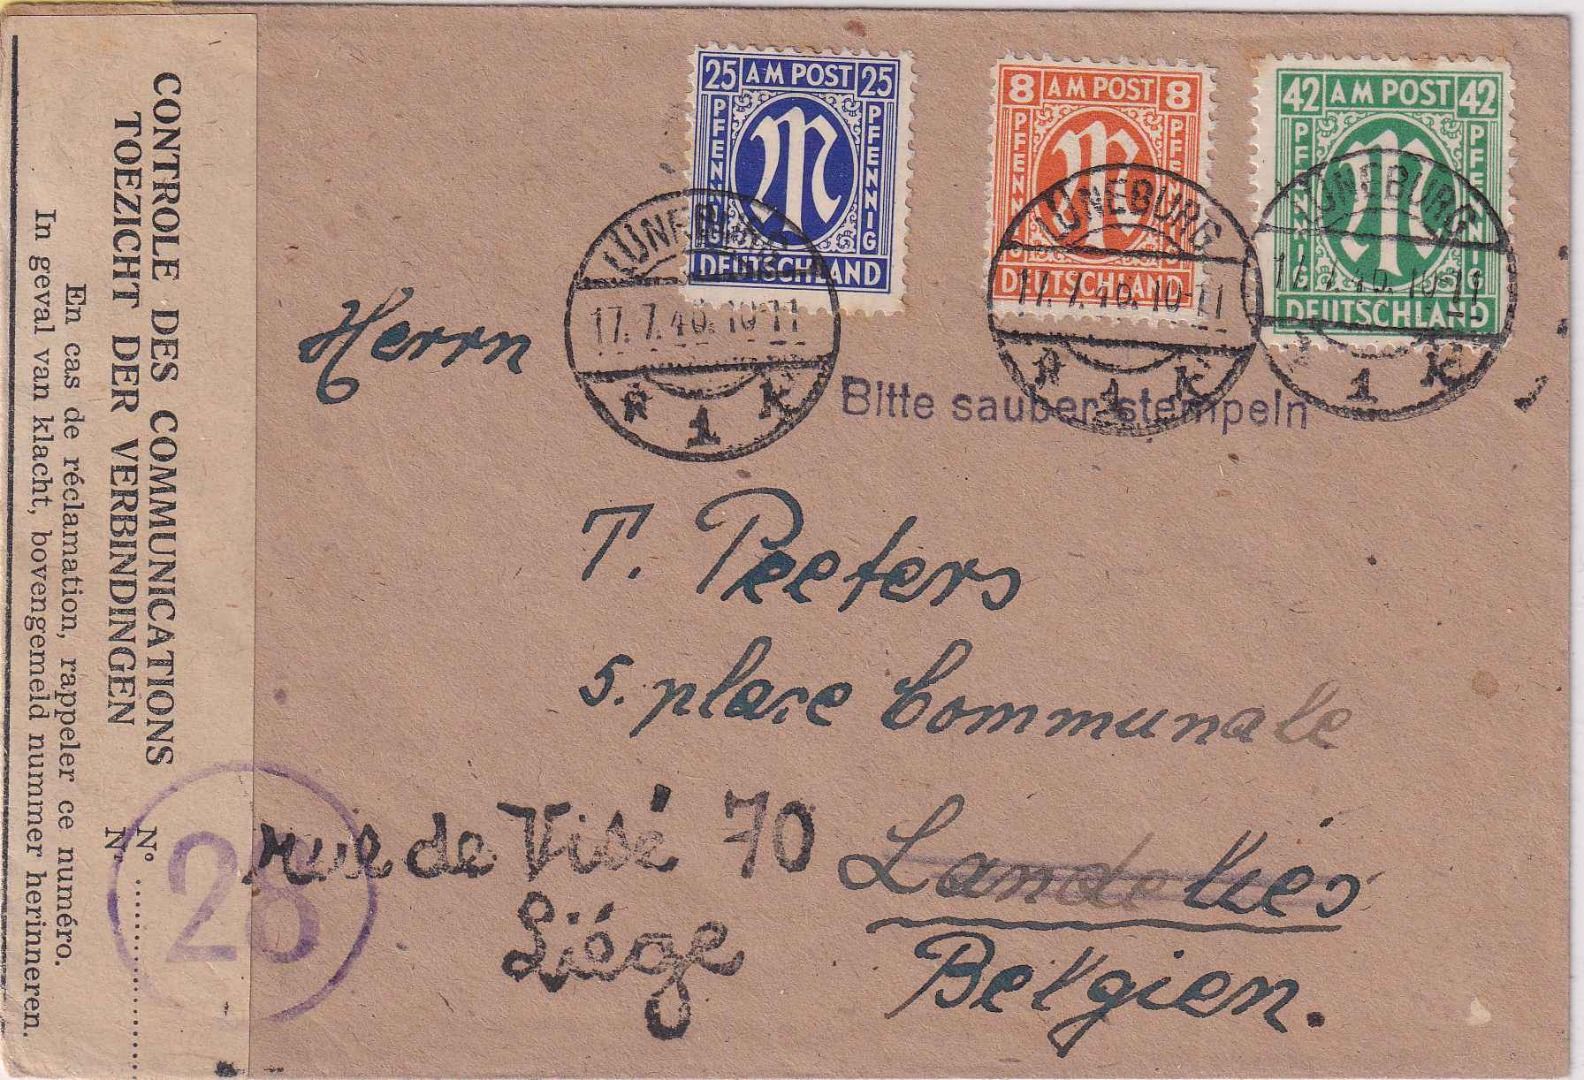 CONTROLE DES COMMUNICATIONS
TOEZICHT DER VERBINDINGEN
No
N.
En cas de réclamation, rappeler ce numéro.
In geval van klacht, bovengemeld nummer herinneren.
28
25 AM POST 25
PFENNIG
PFENNIG
DEUTSCHLAND
8 AM POST 8
PFENNIG
PFENNIG
DEUTSCHLAND
42 AM POST 42
PFENNIG
PFENNIG
DEUTSCHLAND
LÜNEBURG
17.7.46.10-11
* 1 k
LÜNEBURG
17.7.46.10-11
* 1 k
LÜNEBURG
17.7.46.10-11
1 k
Bitte sauber stempeln
Herrn
T. Peeters
5. place Communale
Landeliés
Belgien.
rue de Visé 70
Liége